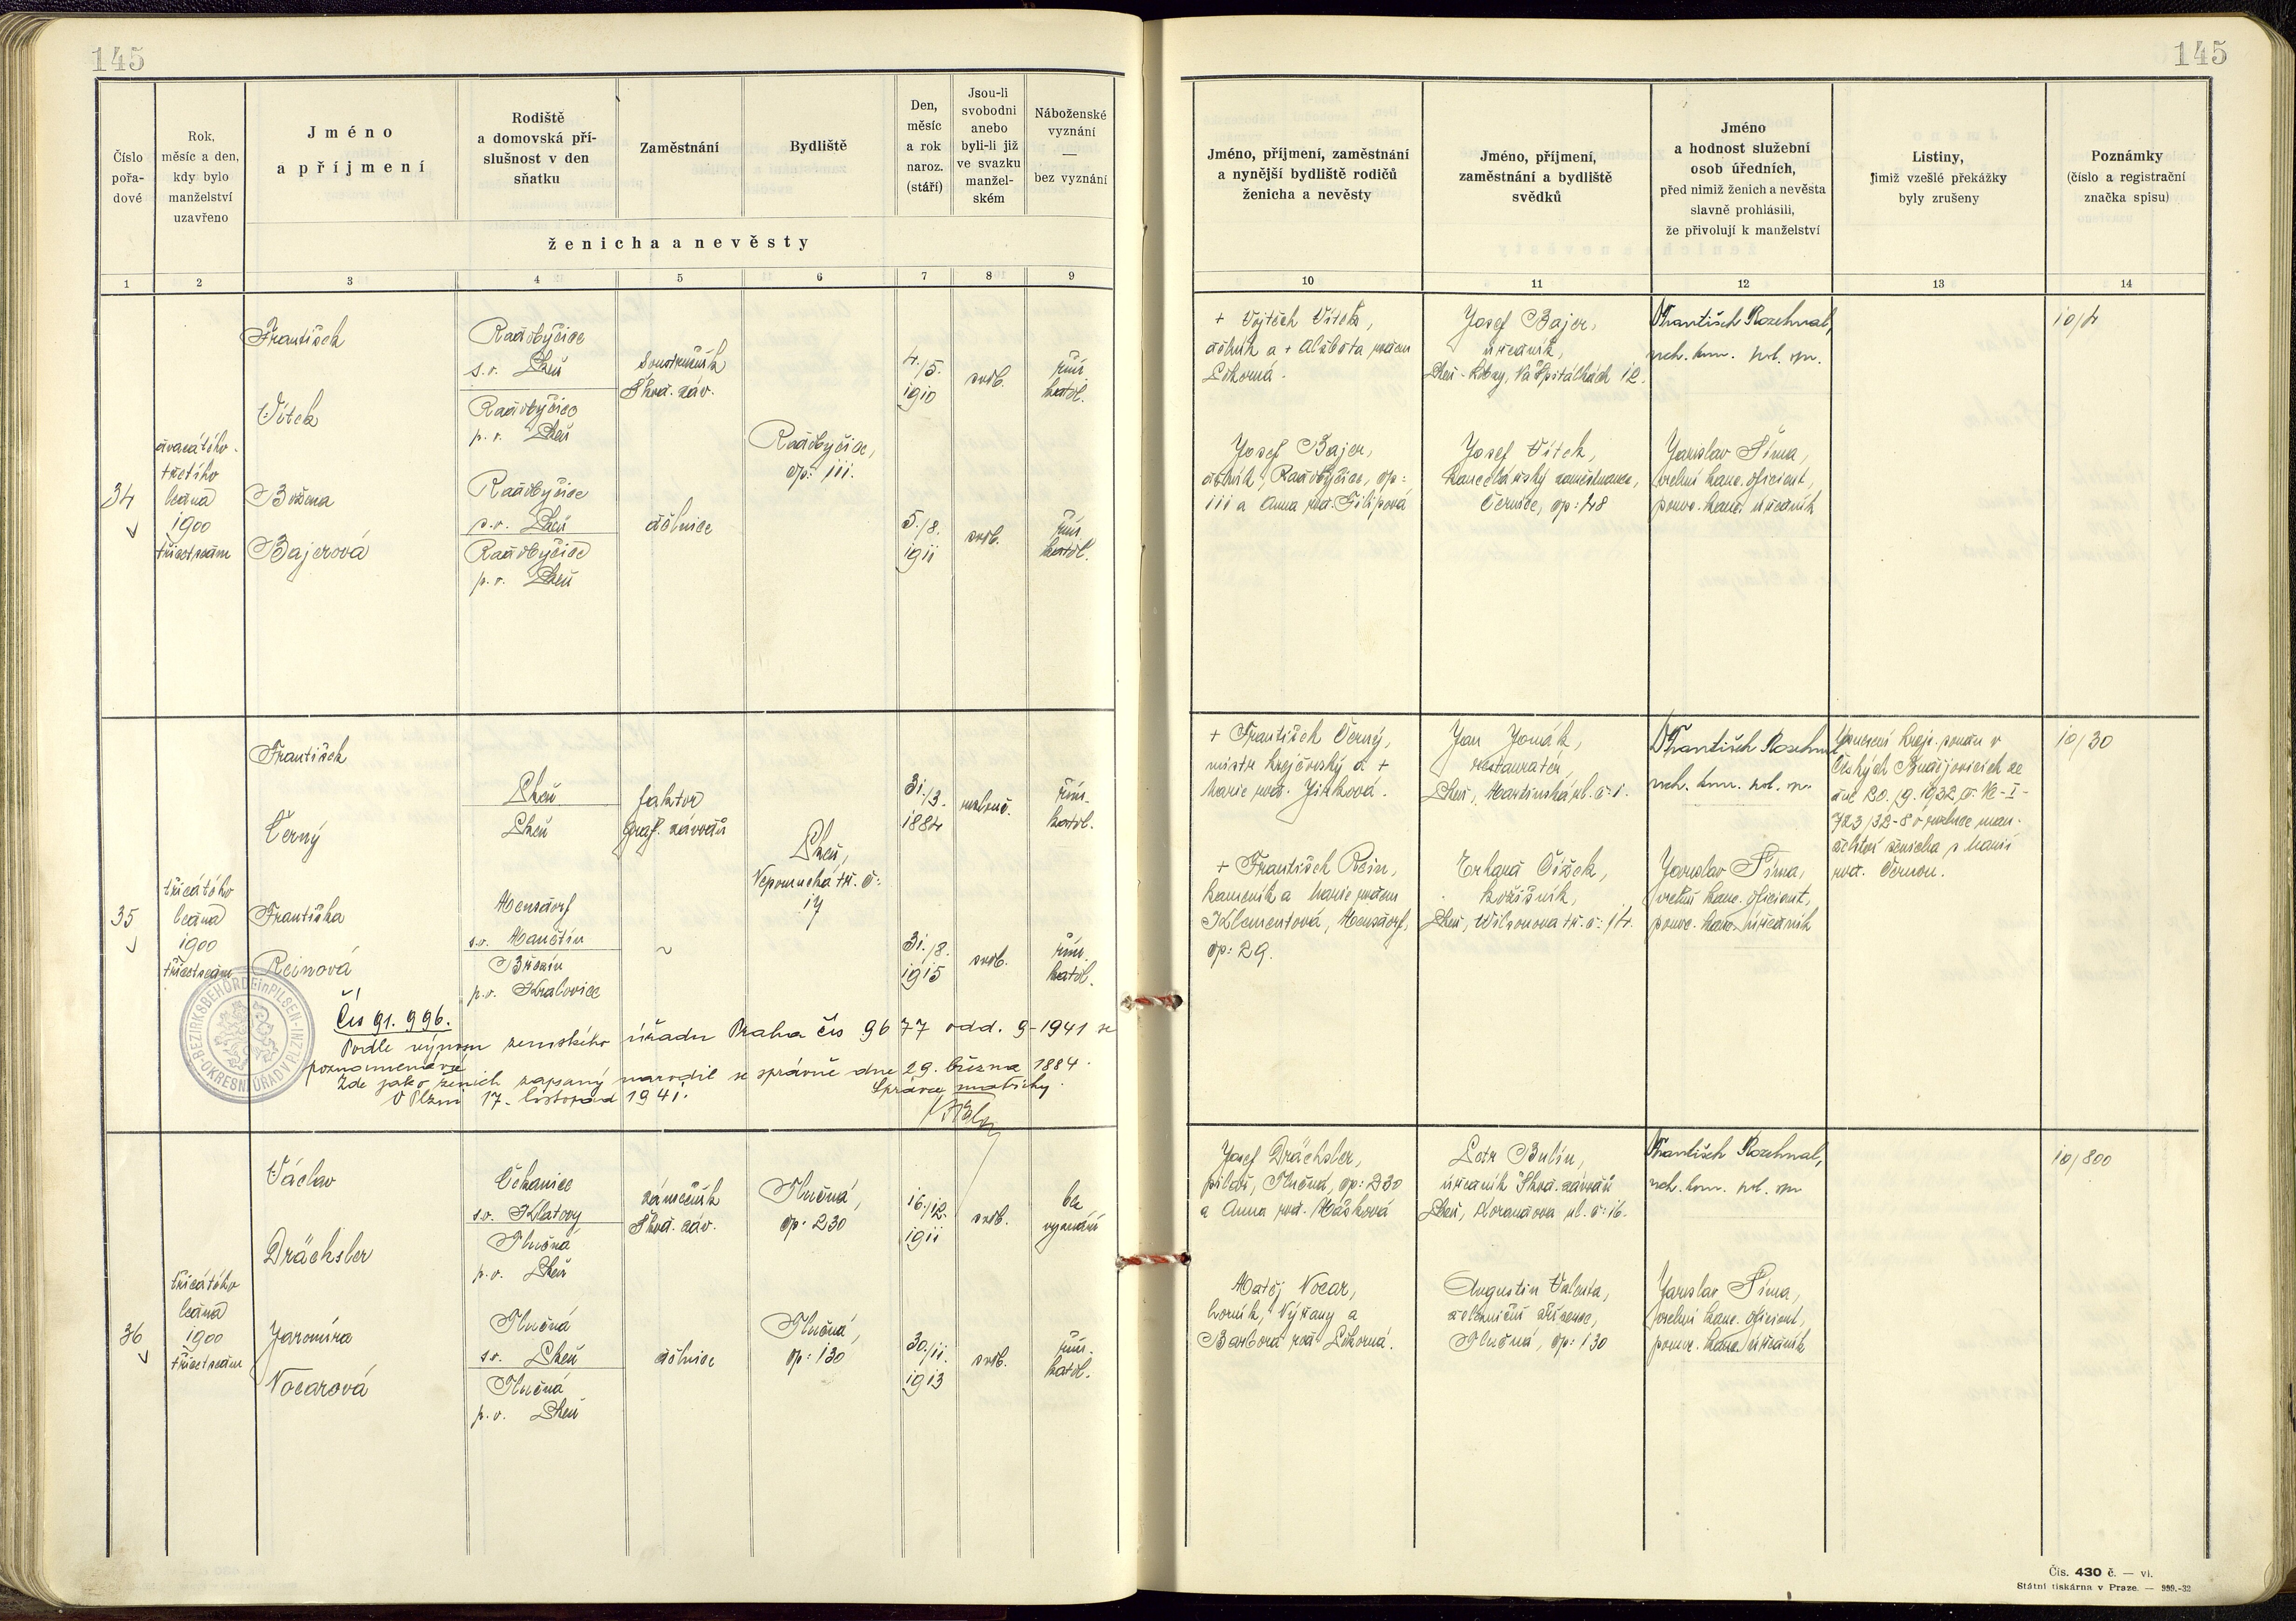 145
145
Číslo
pořa-
dové
Rok,
měsíc a den,
kdy bylo
manželství
uzavřeno
Jméno
a příjmení
Rodiště
a domovská pří-
slušnost v den
sňatku
Zaměstnání
Bydliště
Den,
měsíc
a rok
naroz.
(stáří)
Jsou-li
svobodni
anebo
byli-li již
ve svazku
manžel-
ském
Náboženské
vyznání
—
bez vyznání
ženicha a nevěsty
1 2 3 4 5 6 7 8 9
Jméno, příjmení, zaměstnání
a nynější bydliště rodičů
ženicha a nevěsty
Jméno, příjmení,
zaměstnání a bydliště
svědků
Jméno
a hodnost služební
osob úředních,
před nimiž ženich a nevěsta
slavně prohlásili,
že přivolují k manželství
Listiny,
jimiž vzešlé překážky
byly zrušeny
Poznámky
(číslo a registrační
značka spisu)
10 11 12 13 14
34
dvacátého-
třetího
ledna
1900
třicetsedm
František
Vítek
Božena
Bajerová
Radobyčice
s.o. Plzeň
Radobyčice
p.o. Plzeň
Radobyčice
s.o. Plzeň
Radobyčice
p.o. Plzeň
Soustružník
Škod. záv.
dělnice
Radobyčice,
čp: 111.
4./5.
1910
5./8.
1911
svob.
svob.
řím.
katol.
řím.
katol.
+ Vojtěch Vítek,
dělník a + Alžběta rodem
Pokorná.
Josef Bajer,
dělník, Radobyčice, čp:
111 a Anna rod. Filipová
Josef Bajer,
úředník,
Plzeň-Lobzy, Na Špitálkách 12.
Josef Vítek,
kancelářský zaměstnanec,
Černice, čp: 48
František Rozehnal,
vrch. kom. pol. spr.
Jaroslav Šíma,
vrchní kanc. oficiant,
pověř. kanc. úředník
10/4
35
třicátého
ledna
1900
třicetsedm
František
Černý
Františka
Reinová
Plzeň
Plzeň
Mensdorf
s.o. Manětín
Březín
p.o. Kralovice
faktor
graf. závodů
~
Plzeň,
Nepomucká tř. č:
17
31./3.
1884
31./8.
1915
rozluč.
svob.
řím.
katol.
řím.
katol.
+ František Černý,
mistr krejčovský a +
Marie rod. Jirková.
+ František Rein,
kameník a Marie rodem
Klementová, Mensdorf,
čp: 29.
Jan Jonák,
restauratér,
Plzeň, Martinská ul. č: 1.
Erhard Čížek,
kožišník,
Plzeň, Wilsonova tř. č: 14.
František Rozehnal
vrch. kom. pol. spr.
Jaroslav Šíma,
vrchní kanc. oficiant,
pověř. kanc. úředník
Usnesení kraj. soudu v
Českých Budějovicích ze
dne 20./9. 1932, č. Ck-I-
723/32-8 o rozluce man-
želství ženicha s Marií
rod. Černou.
10/30
BEZIRKSBEHÖRDE in PILSEN-IN
OKRESNÍ ÚŘAD V PLZNI
Čís 91.996.
Podle výnosu zemského úřadu Praha čís 9677 odd. 9-1941 se
poznamenává:
Zde jako ženich zapsaný narodil se správně dne 29. března 1884.
V Plzni 17. listopad 1941.
Správce matriky.
36
třicátého
ledna
1900
třicetsedm
Václav
Drächsler
Jaromíra
Nocarová
Čekanice
s.o. Klatovy
Tlučná
p.o. Plzeň
Tlučná
s.o. Plzeň
Tlučná
p.o. Plzeň
zámečník
Škod. záv.
dělnice
Tlučná,
čp: 230
Tlučná,
čp: 130
16./12.
1911
30./11.
1913
svob.
svob.
bez
vyznání
řím.
katol.
Josef Drächsler,
pilař, Tlučná, čp: 230
a Anna rod. Mašková
Matěj Nocar,
horník, Výtany a
Barbora rod. Pokorná.
Petr Bulín,
úředník Škod. závodů
Plzeň, Korandova ul. č: 16.
Augustin Valenta,
železniční zřízenec,
Tlučná, čp: 130
František Rozehnal,
vrch. kom. pol. spr.
Jaroslav Šíma,
vrchní kanc. oficiant,
pověř. kanc. úředník
10/800
Čís. 430 č. — vi.
Státní tiskárna v Praze. — 999.-32